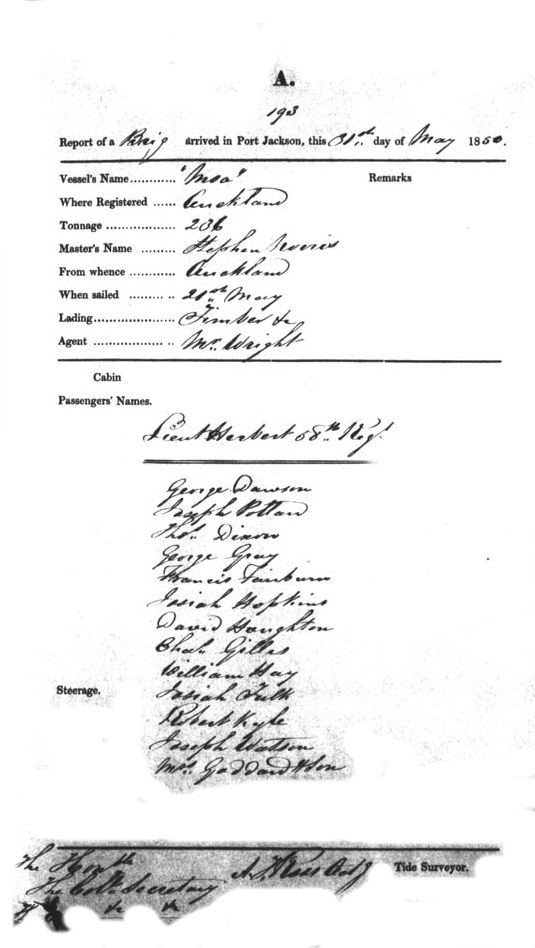 A.
193
Report of a Brig arrived in Port Jackson, this 31st day of May 1850.
Vessel's Name............ "Moa" Remarks
Where Registered ...... Auckland
Tonnage .................. 236
Master's Name ......... Stephen Norris
From whence ............ Auckland
When sailed ......... .. 20th May
Lading..................... Timber &c
Agent .................. .. Mr. Wright
Cabin
Passengers' Names.
Lieut Herbert 58th Regt.
George Dawson
Joseph
Thos. Dixon
George Gray
Francis Fairburn
Josiah Hopkins
David Houghton
Chas. Gilles
William Hay
Steerage. Josiah Tulk
Robert Kyle
Joseph Watson
Mrs. Goddard & Son
The Honble
The Col. Secretary A. Ross Tide Surveyor.
&c &c